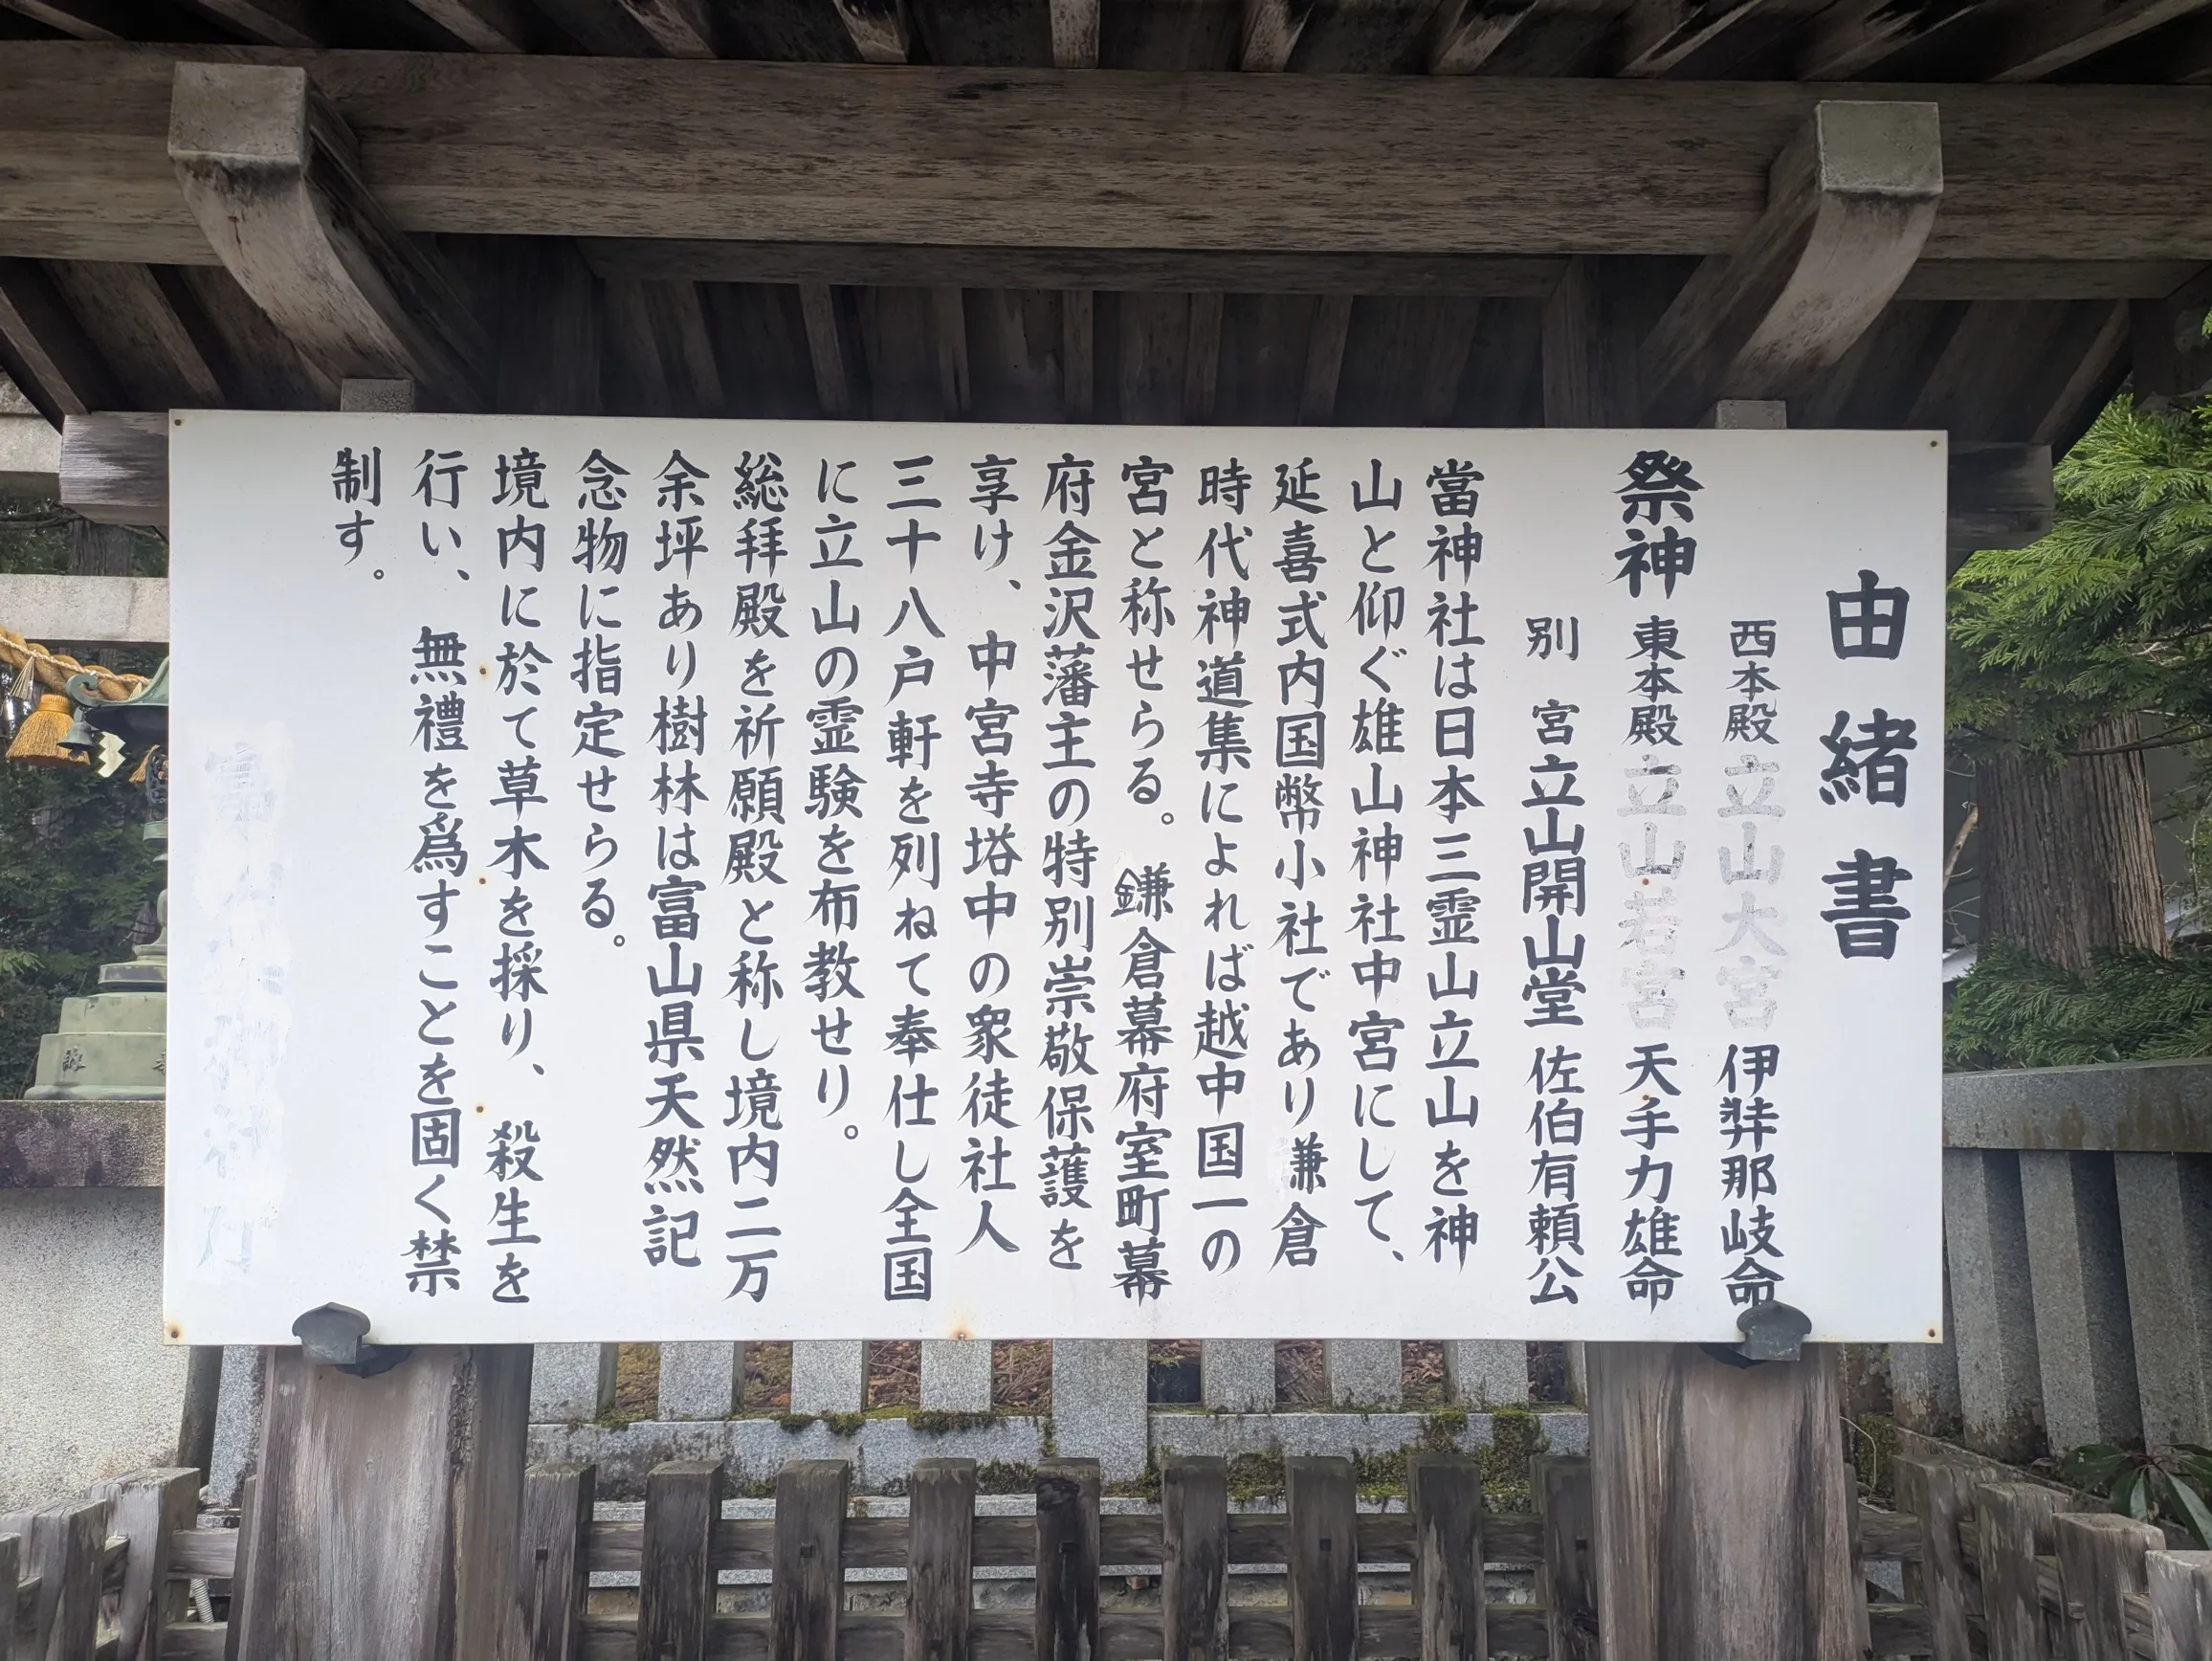 由緒書
西本殿 立山大宮 伊弉那岐命
祭神 東本殿 立山若宮 天手力雄命
別宮 立山開山堂 佐伯有頼公
當神社は日本三霊山立山を神
山と仰ぐ雄山神社中宮にして、
延喜式内国幣小社であり鎌倉
時代神道集によれば越中国一の
宮と称せらる。鎌倉幕府室町幕
府金沢藩主の特別崇敬保護を
享け、中宮寺塔中の衆徒社人
三十八戸軒を列ねて奉仕し全国
に立山の霊験を布教せり。
総拝殿を祈願殿と称し境内二万
余坪あり樹林は富山県天然記
念物に指定せらる。
境内に於て草木を採り、殺生を
行い、無禮を爲すことを固く禁
制す。